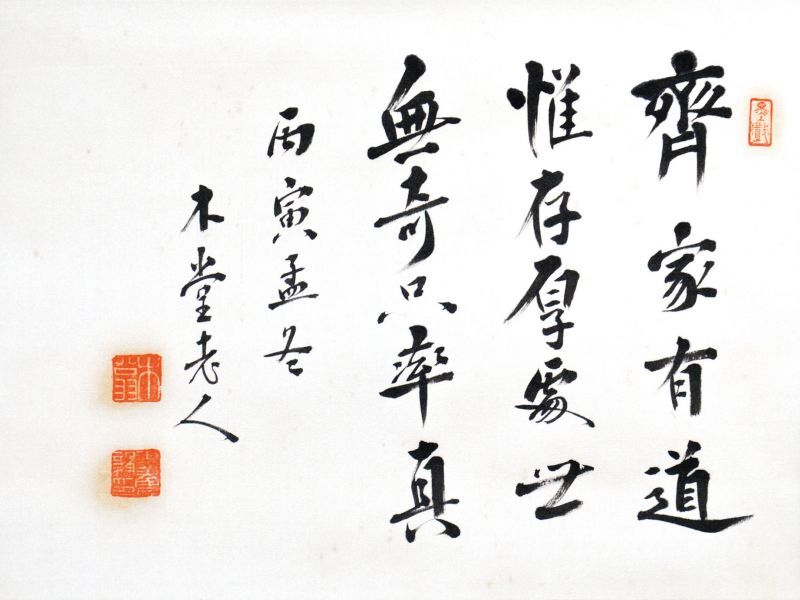 齊家有道
惟存厚處世
無奇只率真
丙寅孟冬
木堂老人
木堂